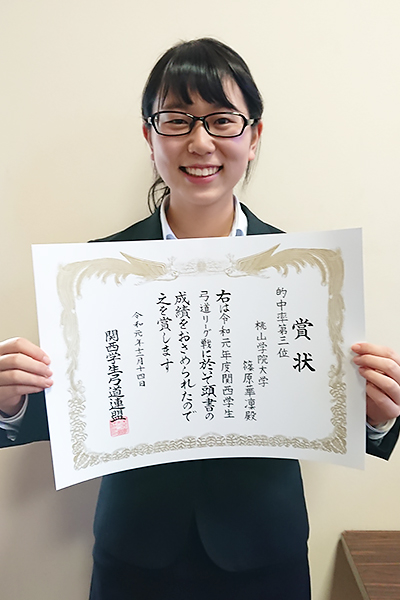 賞状
的中率第三位
桃山学院大学
篠原華凜殿
右は令和元年度関西学生
弓道リーグ戦に於て頭書の
成績をおさめられたので
之を賞します
令和元年十二月十四日
関西学生弓道連盟